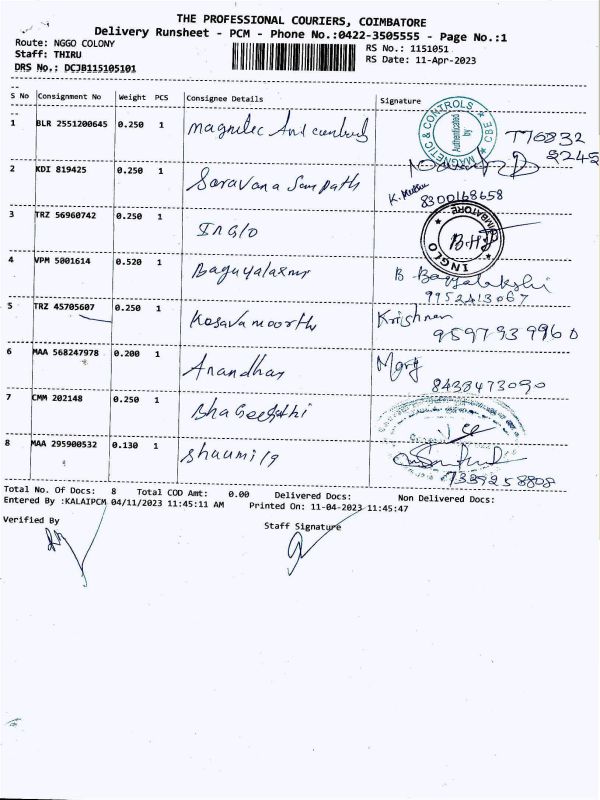 THE PROFESSIONAL COURIERS, COIMBATORE
Delivery Runsheet - PCM - Phone No.:0422-3505555 - Page No.:1
Route: NGGO COLONY
RS No.: 1151051
Staff: THIRU
RS Date: 11-Apr-2023
DRS No.: DCJB115105101
S No Consignment No Weight PCS Consignee Details Signature
1 BLR 2551200645 0.250 1 Magnetic And Controls
MAGNETIC & CONTROLS CBE Authenticated by
2 KDI 819425 0.250 1 Saravana Sampath
8300168658
3 TRZ 56960742 0.250 1 INGLO
INGLO COIMBATORE
4 VPM 5001614 0.520 1 Bagyalaxmi B. Bagyalakshi
9952413067
5 TRZ 45705607 0.250 1 Kesavamoorth Krishnan
9597939960
6 MAA 568247978 0.200 1 Anandhan
8438473090
7 CMM 202148 0.250 1
8 MAA 295900532 0.130 1
7339258808
Total No. Of Docs: 8 Total COD Amt: 0.00 Delivered Docs: Non Delivered Docs:
Entered By :KALAIPCM 04/11/2023 11:45:11 AM Printed On: 11-04-2023 11:45:47
Verified By Staff Signature